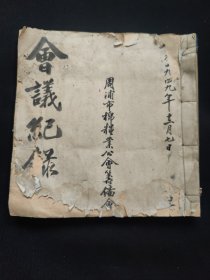 一九四九年十二月七日
周浦市棉糧業公會籌備會
會議紀錄